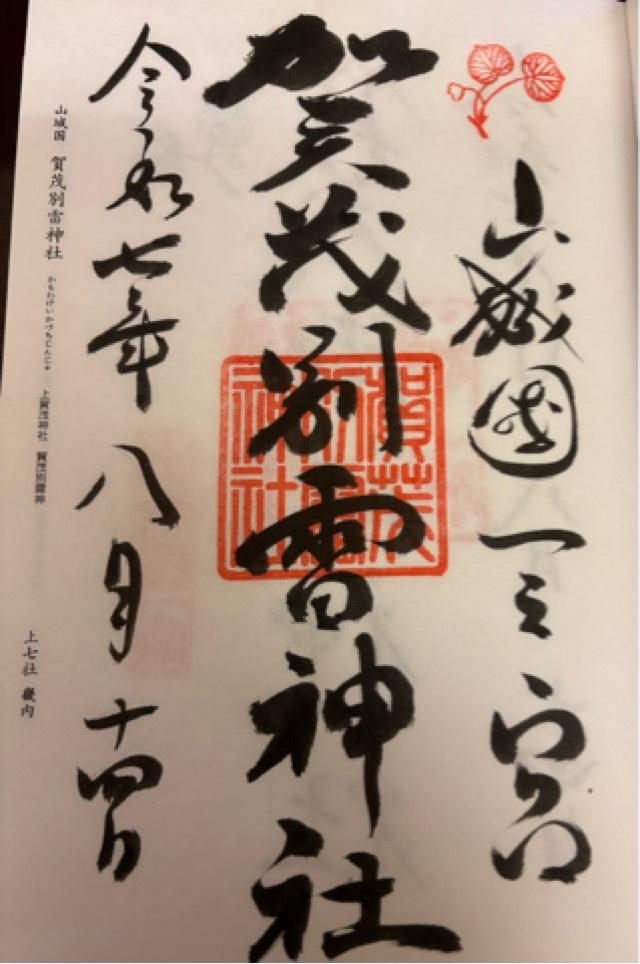 山城國一之宮
賀茂別雷神社
賀茂別雷神社
令和七年八月十四日
山城国 賀茂別雷神社 かもわけいかづちじんじゃ 上賀茂神社 賀茂別雷神
上七社 畿内